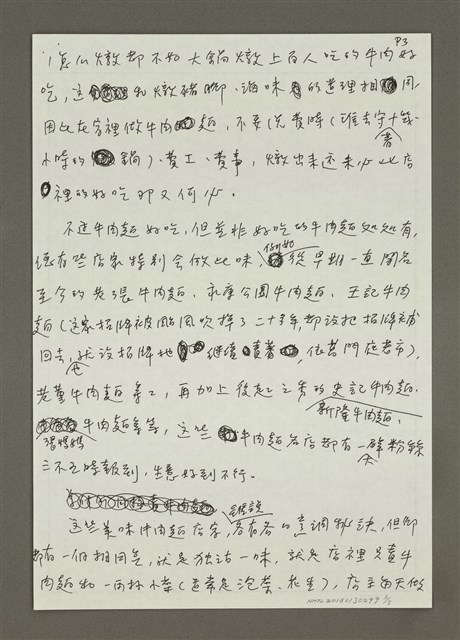 P3
怎么燉都不如大鍋燉上百人吃的牛肉好
吃，這和燉豬腳、滷味的道理相同，
因此在家裡做牛肉麵，不要說費時（誰去守著十幾
小時的鍋）、費工、費事，燉出來還未必比店
裡的好吃那又何必。
不過牛肉麵好吃，但並非好吃的牛肉麵處處有，
總有些店家特別會做此味，例如從早期一直聞名
至今的老張牛肉麵、永康公園牛肉麵、王記牛肉
麵（這家招牌被颱風吹掉了二十多年，都沒把招牌補
回去，也就沒招牌地繼續賣著，依舊門庭若市），
老董牛肉麵等，再加上後起之秀的史記牛肉麵、
新隆牛肉麵、
洪媽媽牛肉麵等等，這些牛肉麵名店都有一大群粉絲
三不五時報到，生意好到不行。
這些美味牛肉麵店家，雖說各有各的烹調秘訣，但卻
都有一個相同點，就是獨沽一味，就是店裡只賣牛
肉麵和一兩樣小菜（通常是泡菜、花生），店主每天做